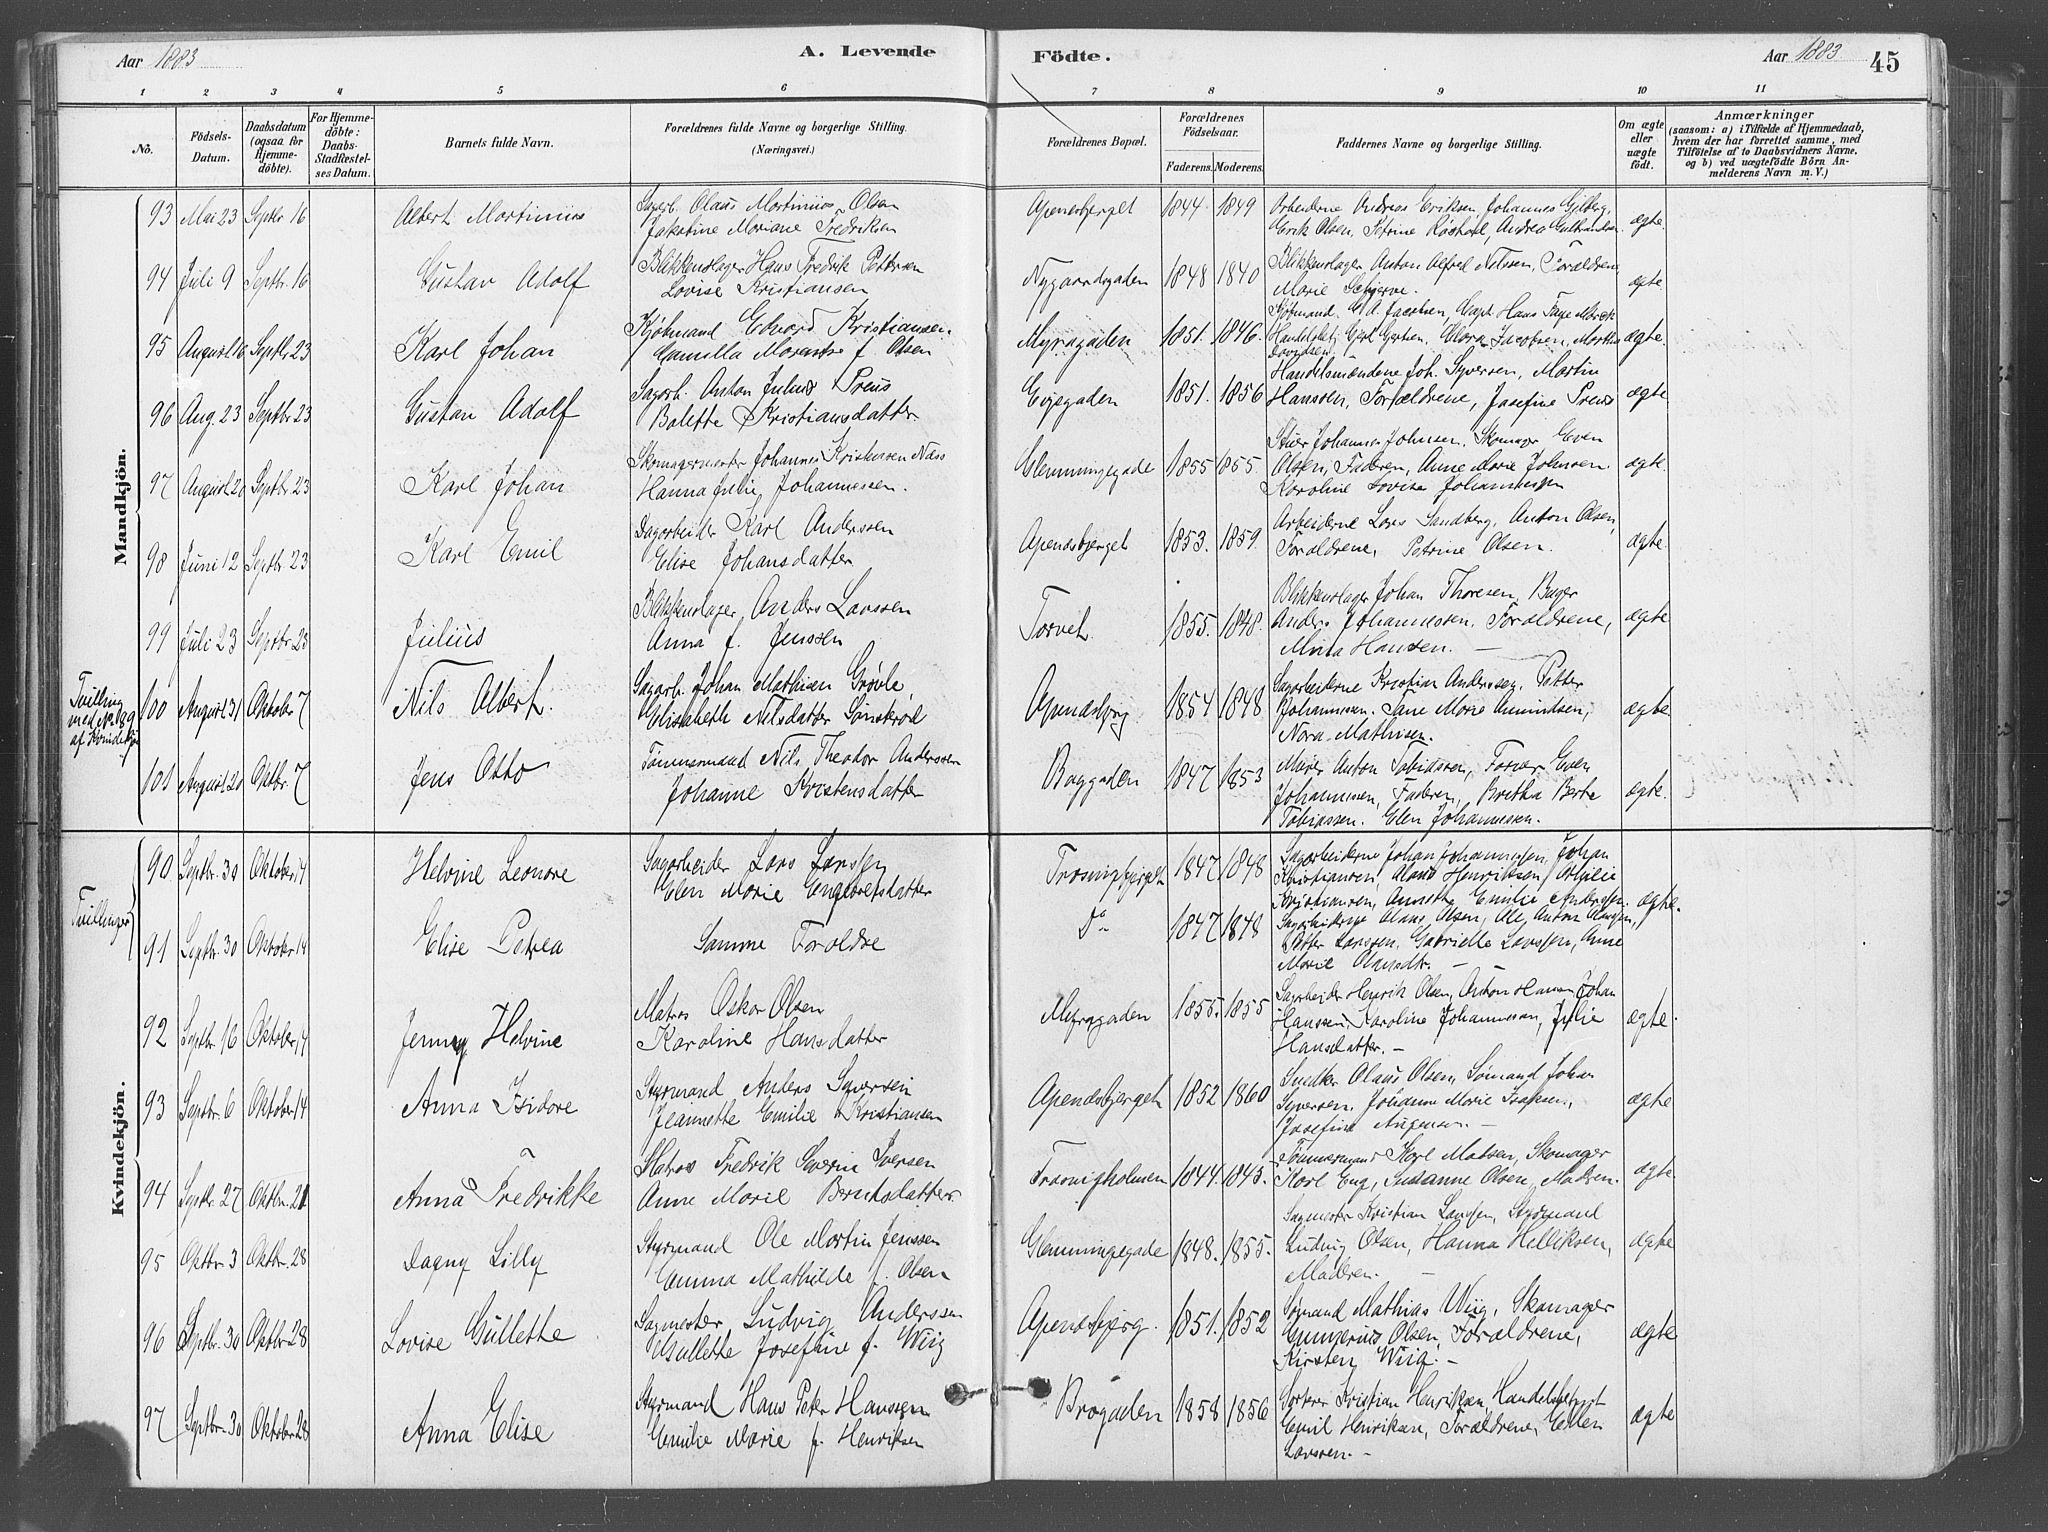 Aar 1883
A. Levende
Födte.
Aar 1883
45
1 2 3 4 5 6 7 8 9 10 11
No.
Födsels-
Datum.
Daabsdatum
(ogsaa for
Hjemme-
döbte).
For Hjemme-
döbte:
Daabs-
Stadfæstel-
ses Datum.
Barnets fulde Navn.
Forældrenes fulde Navne og borgerlige Stilling.
(Næringsvei.)
Forældrenes Bopæl.
Forældrenes
Födselsaar.
Faderens. Moderens.
Faddernes Navne og borgerlige Stilling.
Om ægte
eller
uægte
födt.
Anmærkninger
(saasom: a) i Tilfælde af Hjemmedaab,
hvem der har forrettet samme, med
Tilföielse af to Daabsvidners Navne,
og b) ved uægtefödte Börn An-
melderens Navn m. V.)
Mandkjön.
93 Mai 23 Septbr 16 Albert Martinius
Sagarb. Olaus Martinius Olsen
Jakobine Mariane Fredriksen
Apenesbjerget 1844 1849
Arbeiderne Andreas Eriksen, Johannes
Erik Olsen, Petrine Andrea
ægte.
94 Juli 9 Septbr. 16 Gustav Adolf
Blikkenslager Hans Fredrik Pettersen
Lovise Kristiansen
Nygaardsgaden 1848 1840
Blikkenslager Anton Alfred Nilssen, Forældrene
Marie
ægte
95 August 16 Septbr 23 Karl Johan
Kjøbmand Edvard Kristiansen
Camilla f. Olsen
Myragaden 1851. 1846.
Kjøbmand Jacobsen, Capt. Hans
Jacobsen,
Davidsen.
ægte.
96 Aug. 23 Septbr 23 Gustav Adolf
Sagarb. Anton Julius Preus
Bolette Kristiansdatter
Evjegaden 1851. 1856
Handelsmændene Joh. Syversen, Martin
Hanssen, Forældrene, Josefine Preus
ægte
97 August 20 Septbr 23 Karl Johan
Skomagermester Johannes Kristensen Næss
Hanna Julie Johannessen.
Glemmingegade 1855 1855.
Johannes Johnsen. Skomager Even
Olsen, Faderen, Anne Marie Johnsen.
Karoline Lovise Johannessen
ægte.
98 Juni 12 Septbr. 23 Karl Emil
Dagarbeider Karl Anderssen
Elise Johansdatter
Apenesbjerget 1853. 1859.
Arbeiderne Lars Sandberg, Anton Olsen,
Forældrene, Petrine Olsen.
ægte.
99 Juli 23 Septbr 23 Julius
Blikkenslager Anders Larssen
Anna f. Jenssen
Torvet. 1855. 1848.
Blikkenslager Johan Thoresen, Bager
Anders Johannessen, Forældrene,
Hansen. —
ægte
Tvilling
med No. 89
af Kvindekjøn
100 August 31 Oktober 7 Nils Albert.
Sagarb. Johan Mathisen Grøvle,
Elisabeth Nilsdatter Sønskrød
Apenesbjerg 1854 1848
Sagarbeiderne Kristian Anderssen, Petter
Johannessen. Jane Marie Amundsen,
Nora Mathisen.
ægte
101 August 20 Oktbr. 7 Jens Otto
Tømmermand Nils Theodor Anderssen
Johanne Kristensdatter
Baggaden 1847 1853
Murer Anton Tobiassen, Even
Johannessen, Faderen, Berthe
Tobiassen. Elen Johannessen.
ægte.
Kvindekjön.
Tvillinger
90 Septbr. 30 Oktober 14 Helvine Leonore
Sagarbeider Lars Larssen
Elen Marie Engebretsdatter
1847 1848
Sagarbeiderne Johan Johannessen, Johan
Kristiansen, Olaus Henriksen, Othilie
Kristiansen, Annette Emilie Andersen.
ægte.
91 Septbr. 30 Oktober 14 Elise Petrea
Samme Forældre
Do 1847 1848
Sagarbeiderne Olaus Olsen, Ole Anton Olaussen,
Petter Larssen, Gabrielle Larssen, Anne
Marie Olausdtr. —
92 Septbr. 16 Oktober 14 Jenny Helvine
Matros Oskar Olsen
Karoline Hansdatter
Myragaden 1855. 1855
Sagarbeider Henrik Olsen, Anton Hansen, Johan
Hanssen, Karoline Johannessen, Julie
Hansdatter. —
ægte.
93 Septbr. 6 Oktober 14 Anna Isidore
Styrmand Anders Syversen
Jeannette Emilie Kristiansen
Apenesbjerget 1852 1860
Snedker Olaus Olsen, Sømand Johan
Syversen, Johanne Marie Isaksen,
Josefine —
ægte
94 Septbr. 27 Oktbr. 21 Anna Fredrikke
Matros Fredrik Severin Iversen
Anne Marie Berntsdatter.
1844. 1845.
Tømmermand Karl Matsen, Skomager
Karl Eng, Susanne Olsen, Madren.
ægte.
95 Oktbr 3 Oktbr. 28 Dagny Lilly
Styrmand Ole Martin Jenssen
Emma Mathilde f. Olsen
Glemmingegade 1848. 1855.
Sagmester Kristian Larssen, Styrmand
Ludvig Olsen, Hanna Helliksen,
Moderen. —
ægte
96 Septbr. 30 Oktbr 28 Lovise Gullette
Sagmester Ludvig Anderssen
Gullette Josefine f. Wiig
Apenesbjerg. 1851. 1852
Sømand Mathias Wiig, Skomager
Gunnerius Olsen, Forældrene,
Kirsten Wiig. —
ægte
97 Septbr. 30 Oktober 28 Anna Elise
Styrmand Hans Peter Hanssen
Emilie Marie f. Henriksen
Brogaden 1858 1856
Kristian Henriksen, Handelsbetjent
Emil Henriksen, Forældrene, Ellen
Larssen. —
ægte